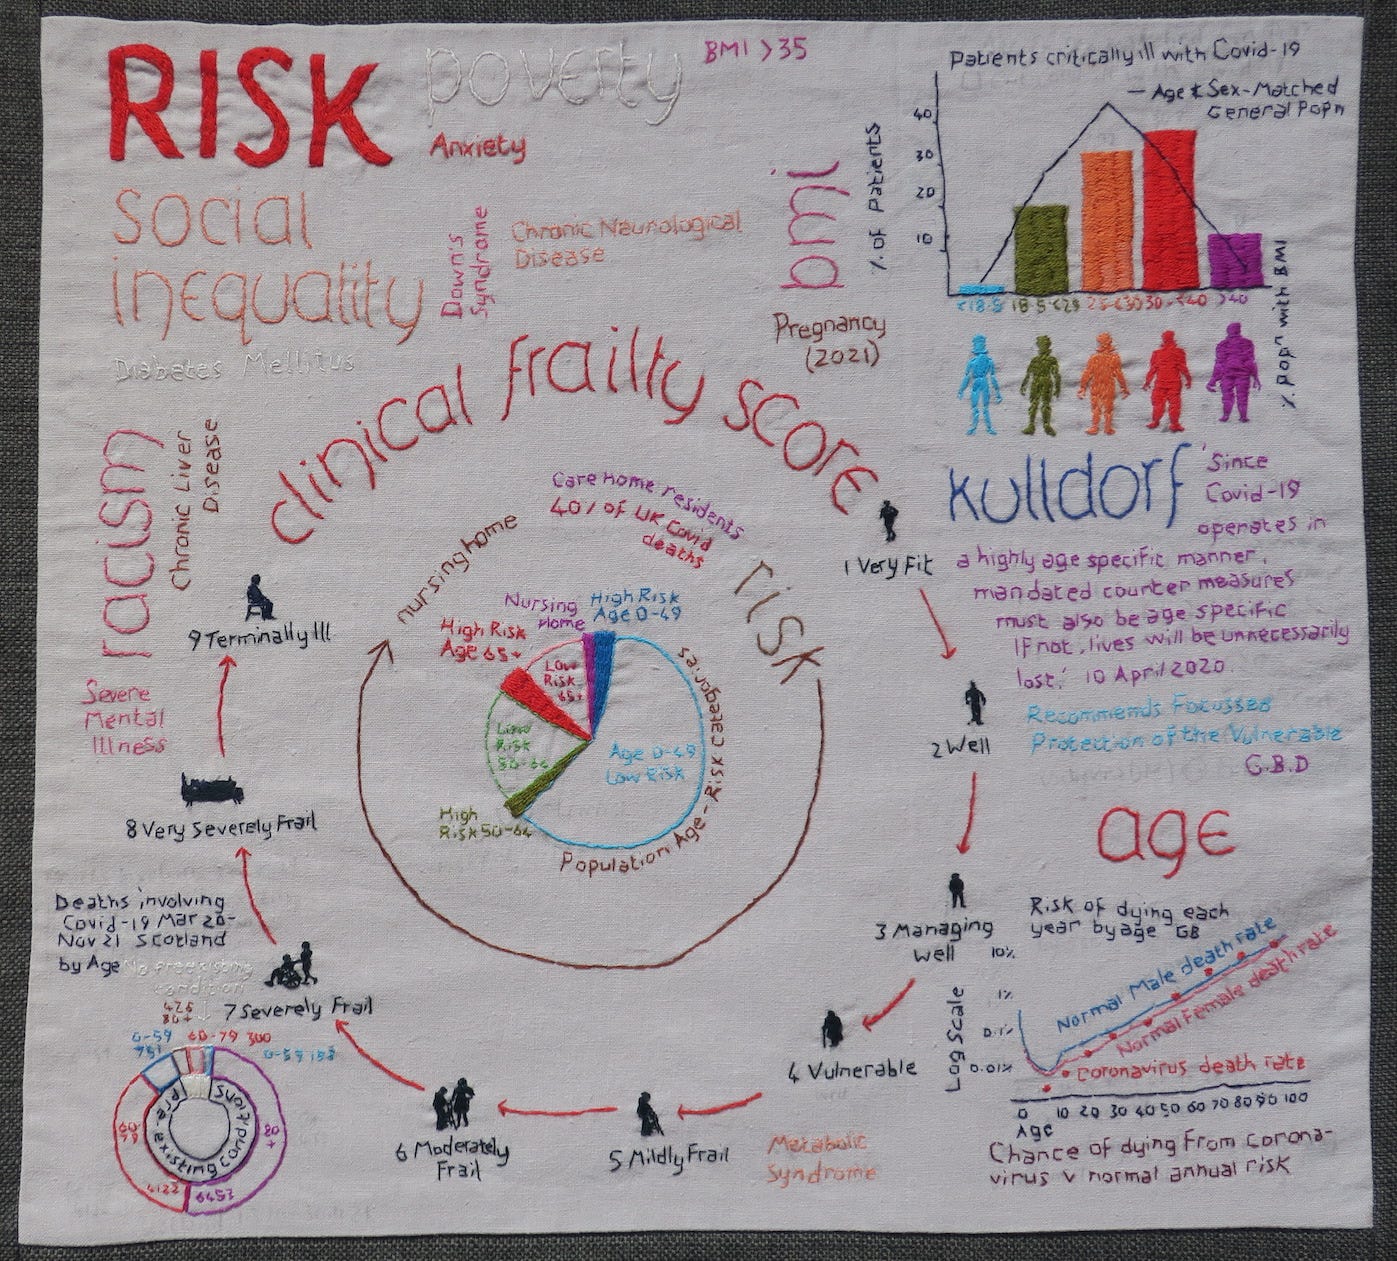 RISK
poverty
BMI >35
Anxiety
social
inequality
Down's
Syndrome
Chronic Neurological
Disease
Diabetes Mellitus
bmi
Pregnancy
(2021)
Patients critically ill with Covid-19
— Age & Sex-Matched
General Popn
% of Patients
40
30
20
10
<18.5 18.5-<25 25-<30 30-<40 >40
% popn with BMI
clinical frailty score
racism
Chronic Liver
Disease
Severe
Mental
Illness
kulldorf
'Since
Covid-19
operates in
a highly age specific manner,
mandated counter measures
must also be age specific
If not, lives will be unnecessarily
lost.' 10 April 2020
Recommends Focussed
Protection of the Vulnerable
G.B.D
Care home residents
40% of UK Covid
deaths
nursing home
risk
Nursing
Home
High Risk
Age 0-49
High Risk
Age 65+
Low
Risk
65+
Low
Risk
50-64
High
Risk 50-64
Age 0-49
Low Risk
Population Age - Risk Categories
1 Very Fit
2 Well
3 Managing
well
4 Vulnerable
5 Mildly Frail
6 Moderately
Frail
7 Severely Frail
8 Very Severely Frail
9 Terminally Ill
Metabolic
Syndrome
age
Risk of dying each
year by age GB
10%
1%
0.1%
0.01%
Log Scale
Normal Male death rate
Normal Female death rate
Coronavirus death rate
0 10 20 30 40 50 60 70 80 90 100
Age
Chance of dying from corona-
virus v normal annual risk
Deaths involving
Covid-19 Mar 20-
Nov 21 Scotland
by Age
No preexisting
condition
426
80+
0-59
751
60-79 300
0-59 183
60-
79
80
+
4122
6453
Pre-existing conditions